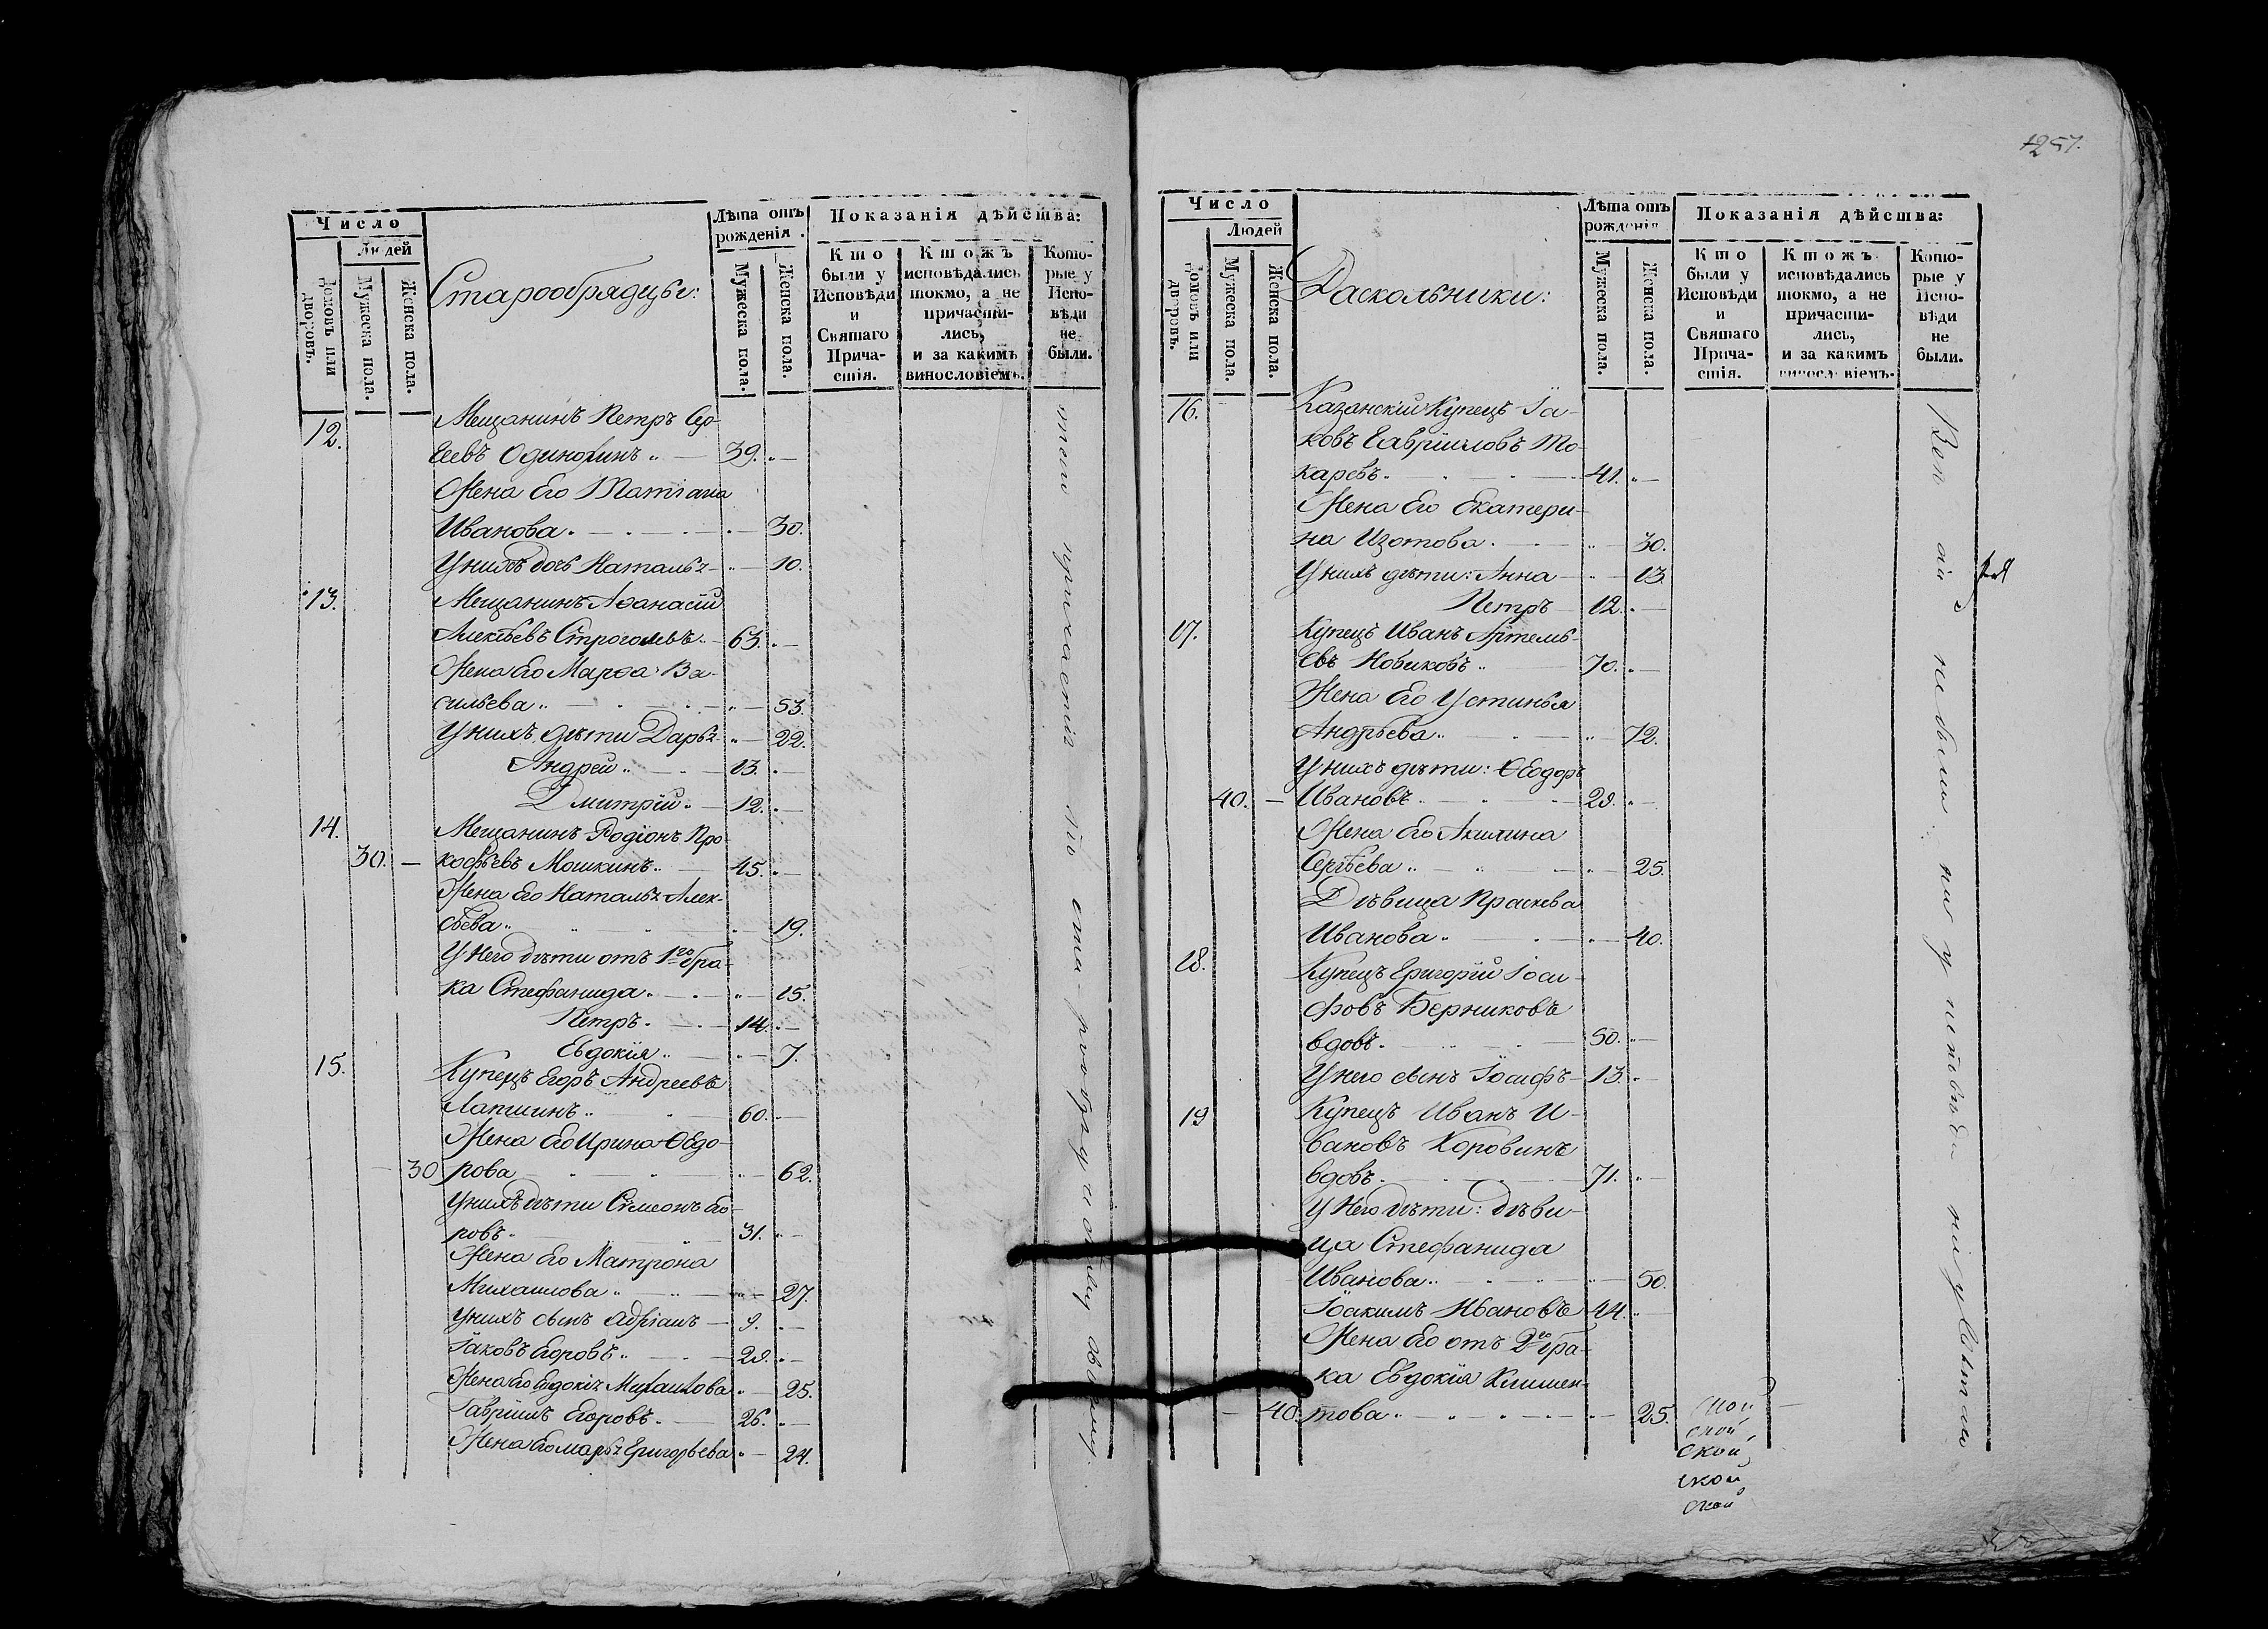 Число
Людей
Домовъ или дворовъ.
Мужеска пола.
Женска пола.
Старообрядцы:
Лѣта отъ рожденія.
Мужеска пола.
Женска пола.
Показанія дѣйства:
Кто были у Исповѣди и Святаго Прича-стія.
Ктожъ исповѣдались токмо, а не причасти-лись, и за какимъ винословіемъ.
Кото-рые у Испо-вѣди не были.
12. Мещанинъ Петръ Сер-
геевъ Одинохинъ 39.
Жена Его Татіана
Иванова. 30.
У нихъ дочь Наталья 10.
13. Мещанинъ Аѳанасій
Алексѣевъ 63.
Жена Его Марѳа Ва-
сильева 53.
У нихъ дѣти Дарья 22.
Андрей 13.
Дмитрій 12.
14. Мещанинъ Родіонъ Про-
30. кофьевъ Мошкинъ 45.
Жена Его Наталья Алек-
сѣева 19.
У Него дѣти отъ 1го бра-
ка Стефанида 15.
Петръ. 14.
Евдокія 7.
15. Купецъ Егоръ Андреевъ
Лапшинъ 60.
Жена Его Ирина Ѳедо-
30 рова 62.
У нихъ дѣти Симеонъ Его-
ровъ 31.
Жена Его Матрона
Михаилова 27.
У нихъ сынъ Адріанъ 9.
Іаковъ Егоровъ 29.
Жена Его Евдокія Михаилова 25.
Гавріилъ Егоровъ 26.
Жена Его Марья Григорьева 24.
1257.
Число
Людей
Домовъ или дворовъ.
Мужеска пола.
Женска пола.
Раскольники:
Лѣта отъ рожденія
Мужеска пола.
Женска пола.
Показанія дѣйства:
Кто были у Исповѣди и Святаго Прича-стія.
Ктожъ исповѣдались токмо, а не причасти-лись, и за какимъ винословіемъ.
Кото-рые у Испо-вѣди не были.
16. Казанскій Купецъ Іа-
ковъ Гавріиловъ То-
каревъ 41.
Жена Его Екатери-
на Изотова 30.
У нихъ дѣти: Анна 13
Петръ 12.
17. Купецъ Иванъ Артемь-
евъ Новиковъ 70.
Жена Его Устинья
Андрѣева 72.
У нихъ дѣти: Ѳеодоръ
40. Ивановъ 29.
Жена Его Акилина
Сергѣева 25.
Дѣвица Праскева
Иванова 40.
18. Купецъ Григорій Іоси-
фовъ Берниковъ
вдовъ 50.
У него сынъ Іосифъ 13.
19 Купецъ Иванъ И-
вановъ Коровинъ
вдовъ 71.
У Него дѣти: дѣви-
ца Стефанида
Иванова 50.
Іоакимъ Ивановъ 44.
Жена Его отъ 2го бра-
ка Евдокія Климен-
40. това 25.
ской
ской
ской
ской